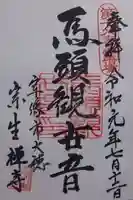 奉拝 令和元年七月十一日
馬頭観世音
宗像市大穂
宗生禅寺